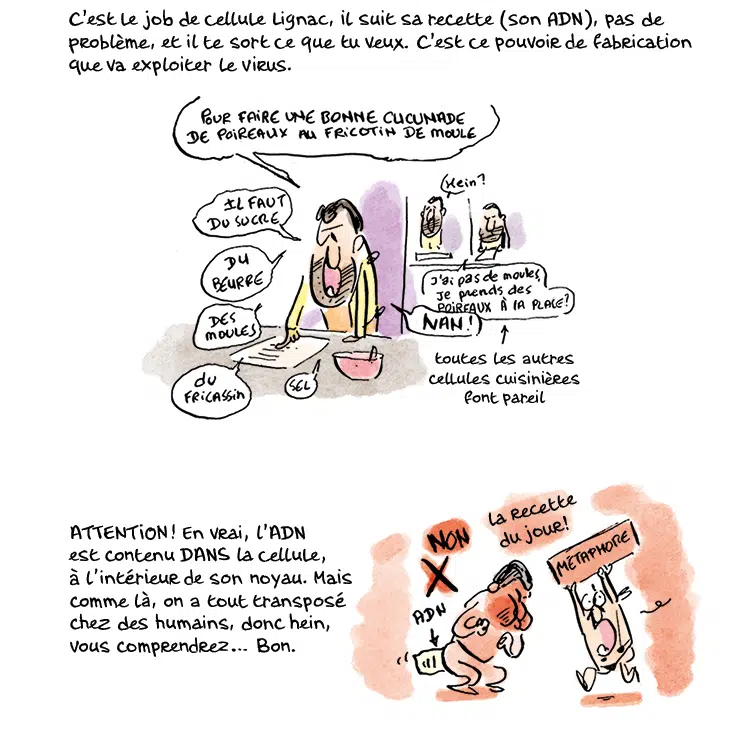 C'est le job de cellule Lignac, il suit sa recette (son ADN), pas de
problème, et il te sort ce que tu veux. C'est ce pouvoir de fabrication
que va exploiter le virus.
POUR FAIRE UNE BONNE CUCUNADE
DE POIREAUX AU FRICOTIN DE MOULE
IL FAUT
DU SUCRE
DU
BEURRE
DES
MOULES
DU
FRICASSIN
SEL
Hein?
J'ai pas de moules,
je prends des
POIREAUX À LA PLACE?
NAN!
toutes les autres
cellules cuisinières
font pareil
ATTENTION! En vrai, l'ADN
est contenu DANS la cellule,
à l'intérieur de son noyau. Mais
comme là, on a tout transposé
chez des humains, donc hein,
vous comprendrez... Bon.
NON
ADN
la recette
du jour!
MÉTAPHORE